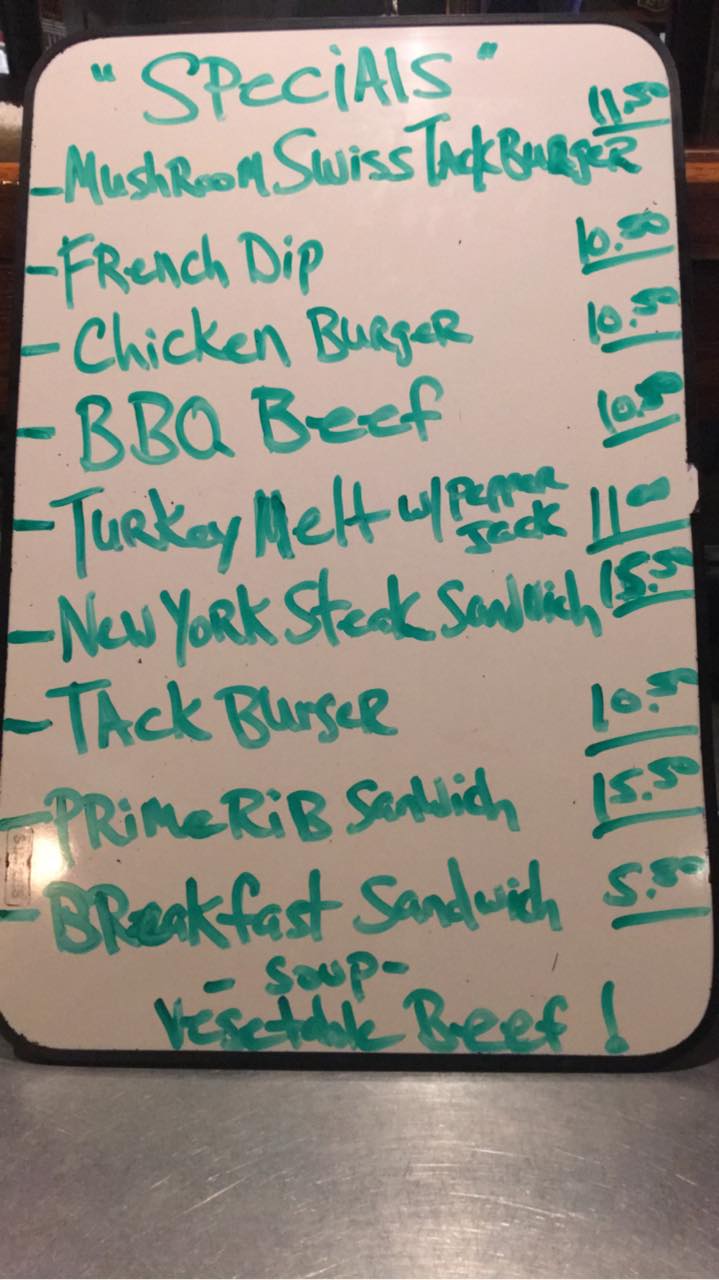 "Specials"
-Mushroom Swiss Tack Burger 11.50
-French Dip 10.50
- Chicken Burger 10.50
- BBQ Beef 10.50
- Turkey Melt w/ Pepper Jack 11.00
- New York Steak Sandwich 15.50
- Tack Burger 10.50
- Prime Rib Sandwich 15.50
- Breakfast Sandwich 5.50
- Soup -
Vegetable Beef!